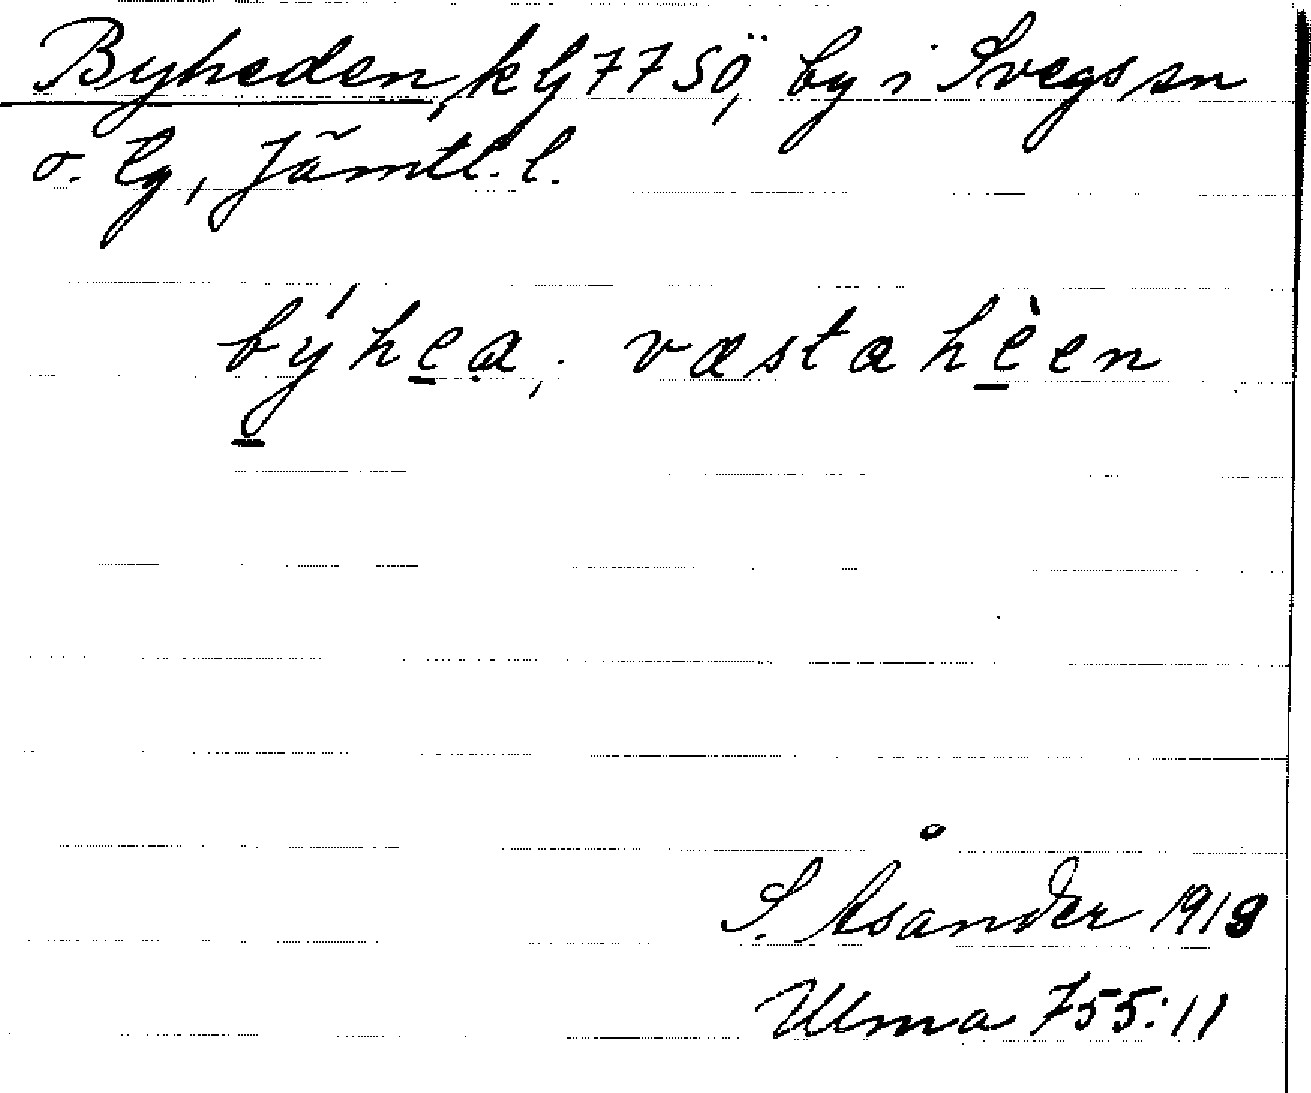 Byheden, kbl 77 SÖ, by i Svegs sn
o. lg, Jämtl. l.
býhea, væstahèen
S. Åsander 1918
Ulma 755:11